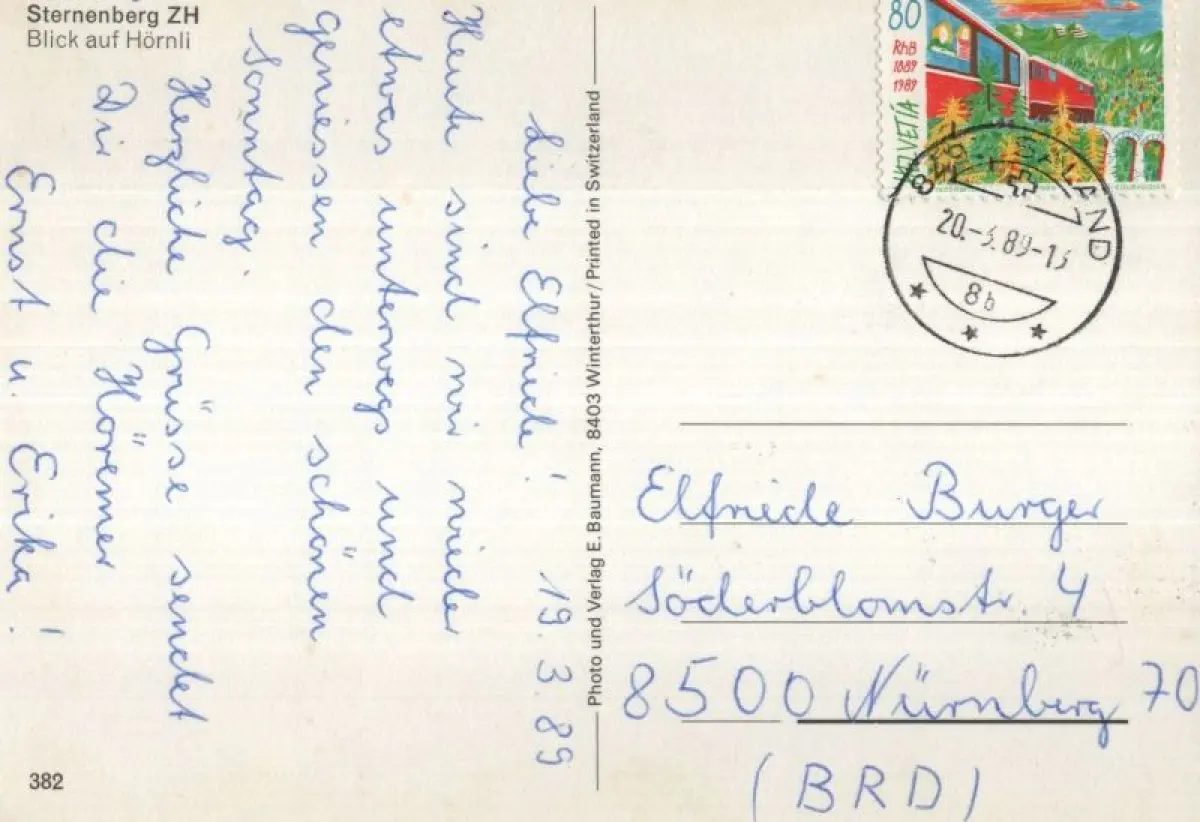 Sternenberg ZH
Blick auf Hörnli
Liebe Elfriede! 19.3.89
Heute sind wir wieder
etwas unterwegs und
geniessen den schönen
Sonntag.
Herzliche Grüsse sendet
Dir die Höremer
Ernst u. Erika!
382
Photo und Verlag E. Baumann, 8403 Winterthur/Printed in Switzerland
80
RhB
1889
1989
HELVETIA
20.-3.89-13
8b
Elfriede Burger
Söderblomstr. 4
8500 Nürnberg 70
(BRD)